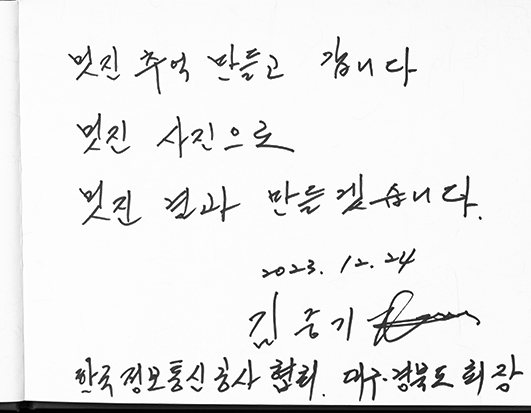 멋진 추억 만들고 갑니다
멋진 사진으로
멋진 결과 만들겠습니다.
2023. 12. 24
김 중 기
한국정보통신공사 협회. 대구·경북도 회장